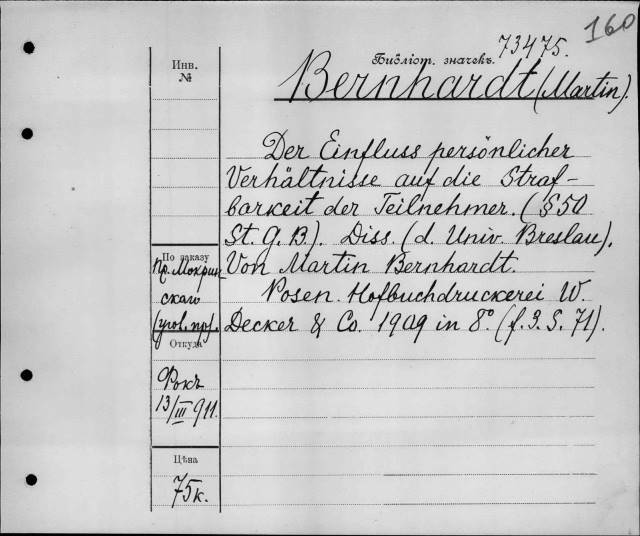 160
73475.
Библіот. значекъ.
Инв.
№
Bernhardt (Martin).
Der Einfluss persönlicher
Verhältnisse auf die Straf-
barkeit der Teilnehmer. (§ 50
St. G. B.). Diss. (d. Univ. Breslau).
Von Martin Bernhardt.
Posen. Hofbuchdruckerei W.
Decker & Co. 1909 in 8°. (f. 3. S. 71).
По заказу
пр. Мокрин
скаго
(угол. пр.).
Откуда
Фокъ
13/III 911.
Цѣна
75 к.